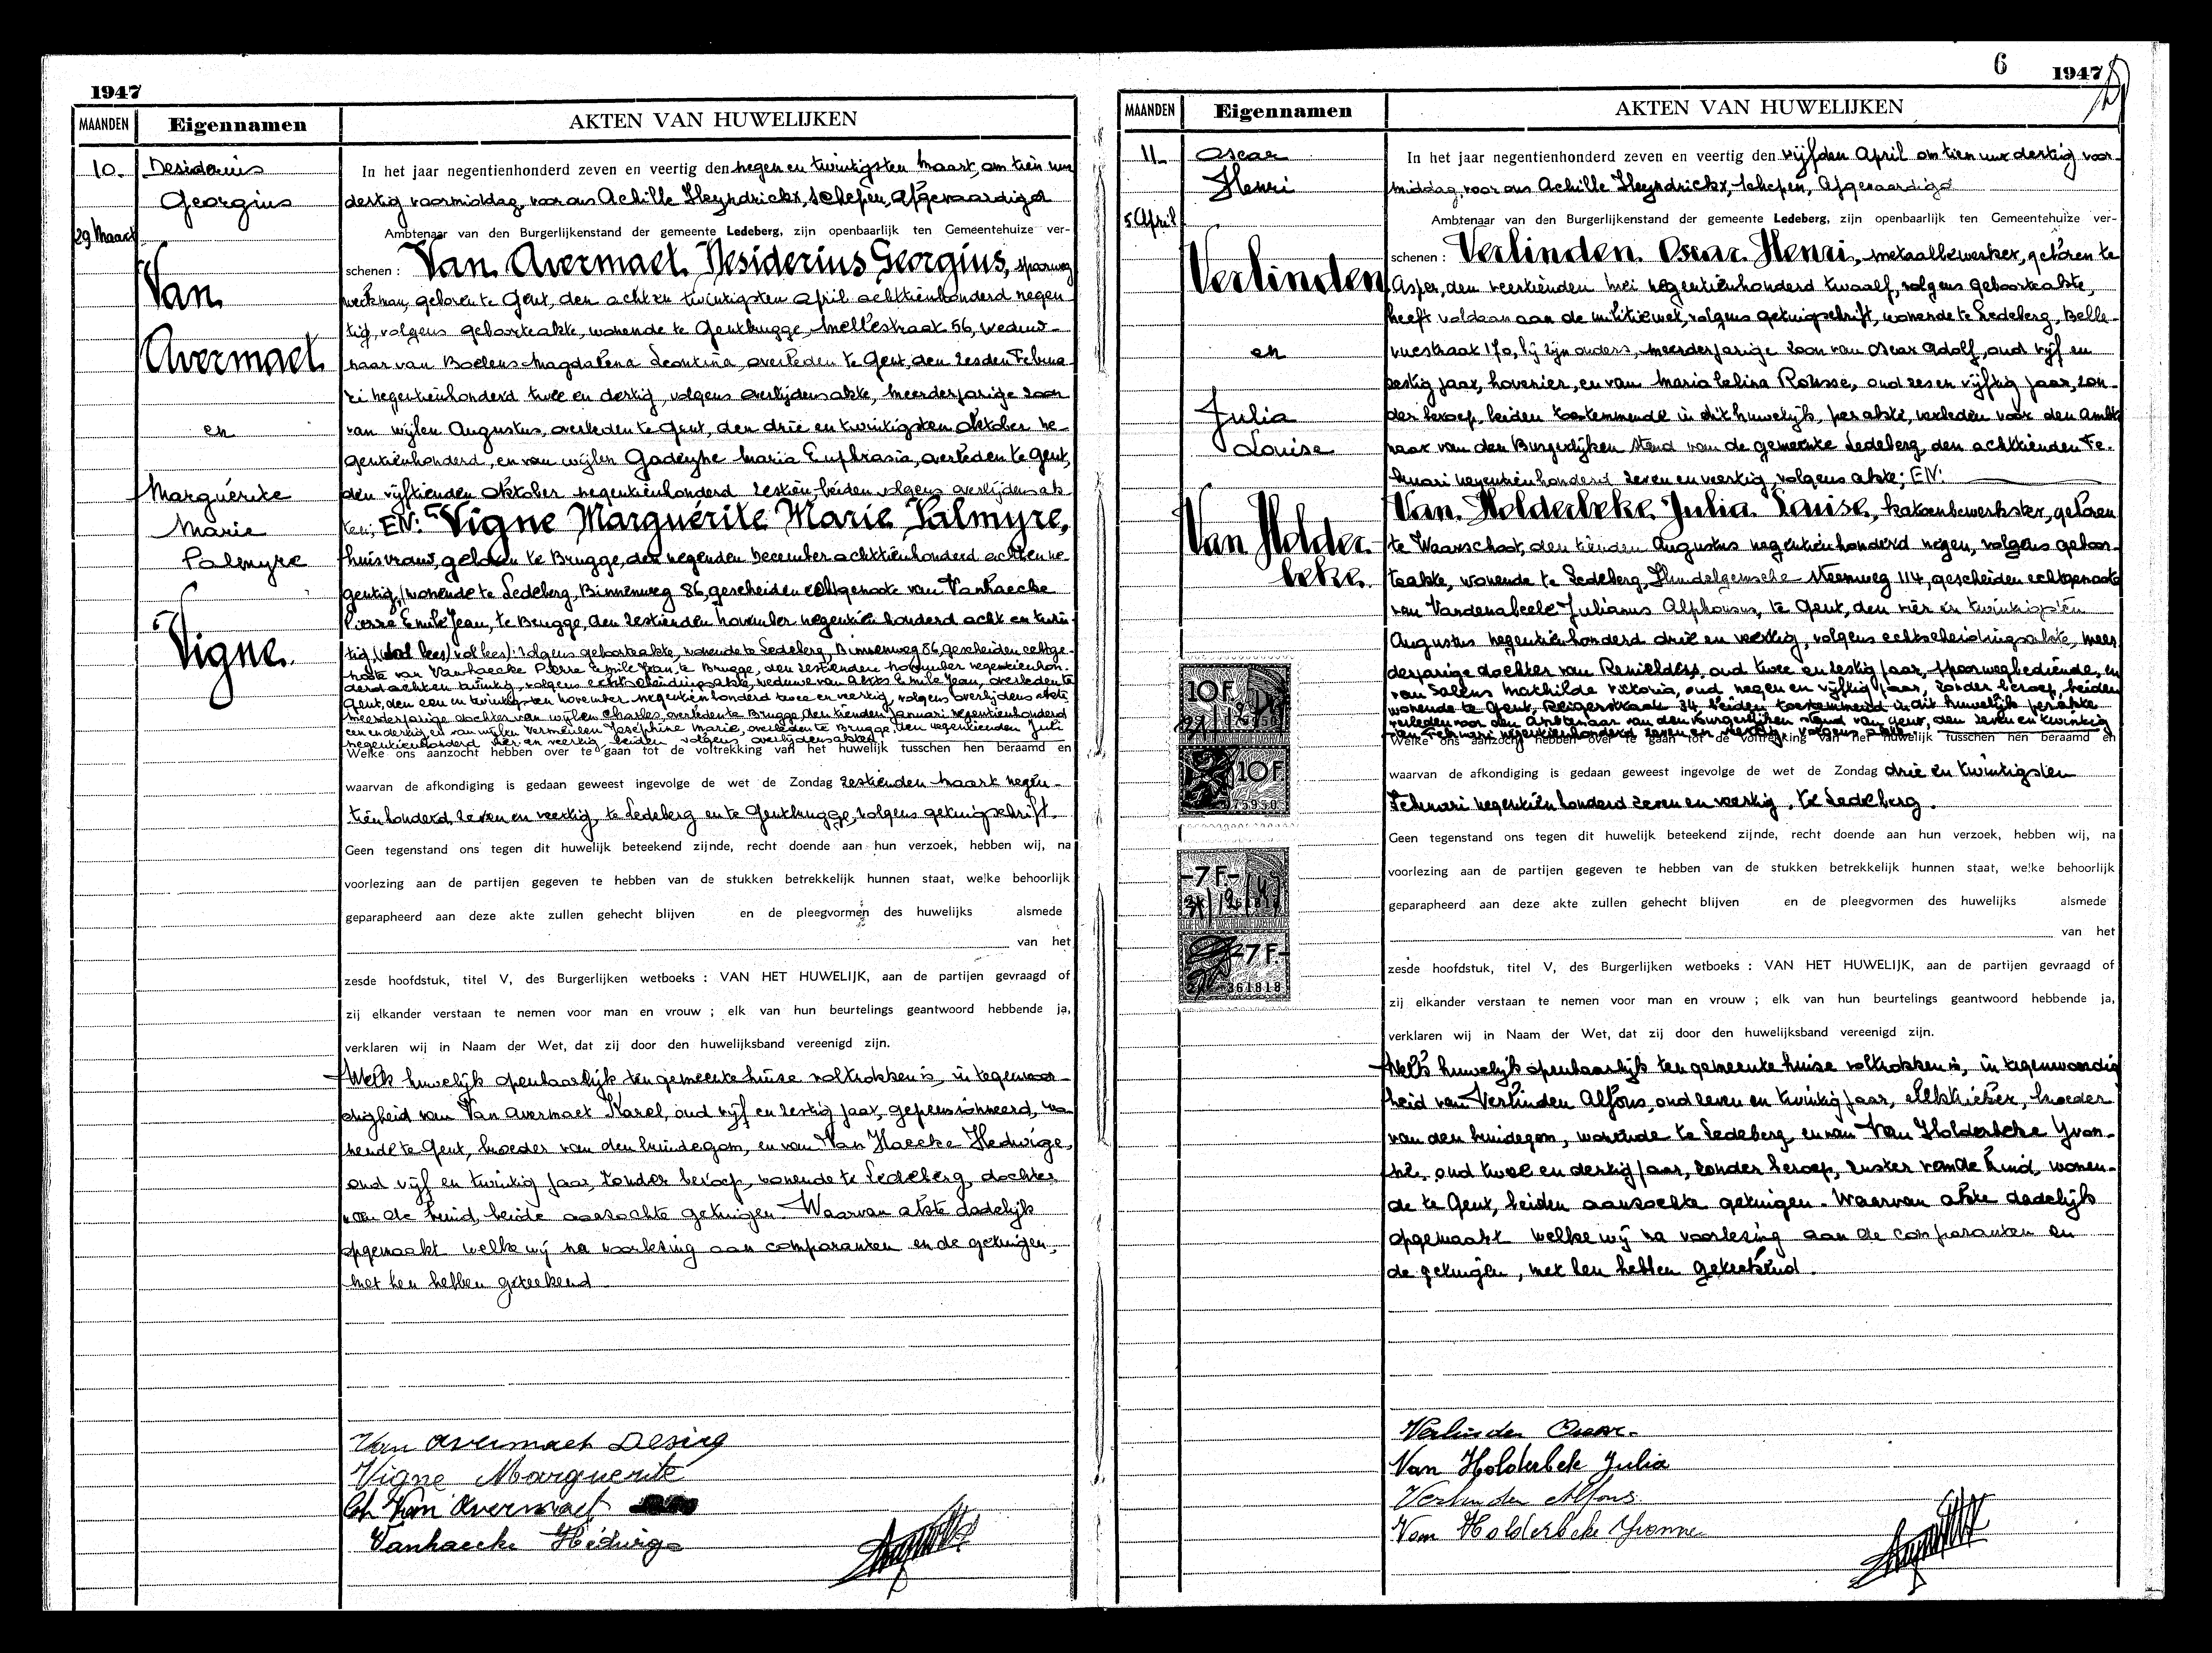 1947
MAANDEN
Eigennamen
AKTEN VAN HUWELIJKEN
10.
29 Maart
Desiderius
Georgius
Van
Avermaet
en
Marguérite
Marie
Palmyre
Vigne.
In het jaar negentienhonderd zeven en veertig den negen en twintigsten Maart, om tien uur
dertig voormiddag, voor ons Achille Heyndrickx, schepen, afgevaardigd
Ambtenaar van den Burgerlijkenstand der gemeente Ledeberg, zijn openbaarlijk ten Gemeentehuize ver-
schenen : Van Avermaet Desiderius Georgius, spoorweg
werkman, geboren te Gent, den acht en twintigsten april achttienhonderd negen
tig, volgens geboorteakte, wonende te Gentbrugge, Mellestraat 56, weduw-
naar van Boelens Magdalena Leontina, overleden te Gent, den zesden Februa-
ri negentienhonderd twee en dertig, volgens overlijdensakte, meerderjarige zoon
van wijlen Augustus, overleden te Gent, den drie en twintigsten oktober ne-
gentienhonderd, en van wijlen Gadeyne Maria Euphrasia, overleden te Gent,
den vijftienden oktober negentienhonderd zestien, beiden volgens overlijdensak-
ten; EN: Vigne Marguérite Marie Palmyre,
huisvrouw, geboren te Brugge, den negenden December achttienhonderd acht en ne-
gentig, wonende te Ledeberg, Binnenweg 86, gescheiden echtgenoote van Vanhaecke
Pierre Emile Jean, te Brugge, den zestienden november negentienhonderd acht en twin-
tig, volgens geboorteakte, wonende te Ledeberg, Binnenweg 86, gescheiden echtge-
noote van Vanhaecke Pierre Emile Jean, te Brugge, den zestienden november negentienhon-
derd acht en twintig, volgens echtscheidingsakte, weduwe van Emile Jean, overleden te
Gent, den een en twintigsten november negentienhonderd twee en veertig, volgens overlijdens akte
meerderjarige dochter van wijlen Charles, overleden te Brugge, den tienden Januari negentienhonderd
een en dertig, en van wijlen Vermeulen Joséphine Marie, overleden te Brugge, den negentienden Juli
negentienhonderd vier en veertig, beiden volgens overlijdensakten.
Welke ons aanzocht hebben over te gaan tot de voltrekking van het huwelijk tusschen hen beraamd en
waarvan de afkondiging is gedaan geweest ingevolge de wet de Zondag zestienden Maart negen-
tienhonderd zeven en veertig, te Ledeberg en te Gentbrugge, volgens getuigschrift.
Geen tegenstand ons tegen dit huwelijk beteekend zijnde, recht doende aan hun verzoek, hebben wij, na
voorlezing aan de partijen gegeven te hebben van de stukken betrekkelijk hunnen staat, welke behoorlijk
geparapheerd aan deze akte zullen gehecht blijven en de pleegvormen des huwelijks alsmede
van het
zesde hoofdstuk, titel V, des Burgerlijken wetboeks : VAN HET HUWELIJK, aan de partijen gevraagd of
zij elkander verstaan te nemen voor man en vrouw ; elk van hun beurtelings geantwoord hebbende ja,
verklaren wij in Naam der Wet, dat zij door den huwelijksband vereenigd zijn.
Welk huwelijk openbaarlijk ten gemeentehuize voltrokken is, in tegenwoor-
digheid van Van Avermaet Karel, oud vijf en zestig jaar, gepensionneerd, wo-
nende te Gent, broeder van den bruidegom, en van Van Haecke Hedwige,
oud vijf en twintig jaar, zonder beroep, wonende te Ledeberg, dochter
van de bruid, beide aanzochte getuigen. Waarvan akte dadelijk
opgemaakt welke wij na voorlezing aan comparanten en de getuigen,
met hen hebben geteekend
Van Avermaet Desiré
Vigne Marguerite
Ch Van Avermaet
Vanhaecke Hedwige
6
1947
MAANDEN
Eigennamen
AKTEN VAN HUWELIJKEN
11.
5 April
Oscar
Henri
Verlinden
en
Julia
Louise
Van Holder-
beke.
10 F
10 F
-7 F.-
-7 F.-
361818
In het jaar negentienhonderd zeven en veertig den vijfden April om tien uur dertig voor-
middag, voor ons Achille Heyndrickx, schepen, Afgevaardigd
Ambtenaar van den Burgerlijkenstand der gemeente Ledeberg, zijn openbaarlijk ten Gemeentehuize ver-
schenen : Verlinden Oscar Henri, metaalbewerker, geboren te
Asper, den veertienden Mei negentienhonderd twaalf, volgens geboorteakte,
heeft voldaan aan de militiewet, volgens getuigschrift, wonende te Ledeberg, Belle-
vuestraat 170, bij zijn ouders, meerderjarige zoon van Oscar Adolf, oud vijf en
zestig jaar, hovenier, en van Maria Celina Rousse, oud zes en vijftig jaar, zon-
der beroep, beiden toestemmende in dit huwelijk, per akte, verleden voor den ambte
naar van den Burgerlijken stand van de gemeente Ledeberg, den achttienden Fe-
bruari negentienhonderd zeven en veertig, volgens akte; EN:
Van Holderbeke Julia Louise, katoenbewerkster, geboren
te Waarschoot, den tienden Augustus negentienhonderd negen, volgens geboor-
teakte, wonende te Ledeberg, Hundelgemsche steenweg 114, gescheiden echtgenoote
van Vandenabeele Julianus Alphonsus, te Gent, den vier en twintigsten
Augustus negentienhonderd drie en veertig, volgens echtscheidingsakte, meer
derjarige dochter van Remieldus, oud twee en zestig jaar, spoorwegbediende, en
van Salens Mathilde Viktoria, oud negen en vijftig jaar, zonder beroep, beiden
wonende te Gent, Reigerstraat 34 beiden toestemmend in dit huwelijk per akte
verleden voor den Ambtenaar van den Burgerlijken stand van Gent, den zeven en twintig
sten Februari negentienhonderd zeven en veertig, volgens akte.
Welke ons aanzocht hebben over te gaan tot de voltrekking van het huwelijk tusschen hen beraamd en
waarvan de afkondiging is gedaan geweest ingevolge de wet de Zondag drie en twintigsten
Februari negentienhonderd zeven en veertig, te Ledeberg.
Geen tegenstand ons tegen dit huwelijk beteekend zijnde, recht doende aan hun verzoek, hebben wij, na
voorlezing aan de partijen gegeven te hebben van de stukken betrekkelijk hunnen staat, welke behoorlijk
geparapheerd aan deze akte zullen gehecht blijven en de pleegvormen des huwelijks alsmede
van het
zesde hoofdstuk, titel V, des Burgerlijken wetboeks : VAN HET HUWELIJK, aan de partijen gevraagd of
zij elkander verstaan te nemen voor man en vrouw ; elk van hun beurtelings geantwoord hebbende ja,
verklaren wij in Naam der Wet, dat zij door den huwelijksband vereenigd zijn.
Welk huwelijk openbaarlijk ten gemeente huize voltrokken is, in tegenwoordig
heid van Verlinden Alfons, oud zeven en twintig jaar, elektrieker, broeder
van den bruidegom, wonende te Ledeberg en van Van Holderbeke Yvon-
ne, oud twee en dertig jaar, zonder beroep, zuster van de bruid, wonen-
de te Gent, beiden aanzochte getuigen. Waarvan akte dadelijk
opgemaakt welke wij na voorlezing aan de comparanten en
de getuigen, met hen hebben geteekend.
Verlinden Oscar.
Van Holderbek Julia
Verlinden Alfons
Van Holderbeke Yvonne